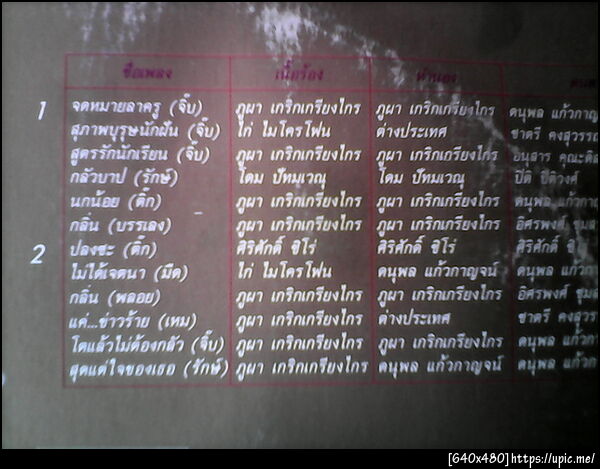 ชื่อเพลง เนื้อร้อง ทำนอง
1 จดหมายลาครู (จิ๊บ) ภูผา เกริกเกรียงไกร ภูผา เกริกเกรียงไกร ดนุพล แก้วกาญ
สุภาพบุรุษนักฝัน (จิ๊บ) ไก่ ไมโครโฟน ต่างประเทศ ชาตรี คงสุวรรณ
สูตรรักนักเรียน (จิ๊บ) ภูผา เกริกเกรียงไกร ภูผา เกริกเกรียงไกร อนุสาร คุณะดิล
กลัวบาป (รักษ์) โดม ปัทมเวณุ โดม ปัทมเวณุ ปิติ
นกน้อย (ติ๊ก) ภูผา เกริกเกรียงไกร ภูผา เกริกเกรียงไกร ดนุพล แก้วกาญ
กลิ่น (บรรเลง) ภูผา เกริกเกรียงไกร ภูผา เกริกเกรียงไกร อิศรพงศ์ ชุมส
2 ปลงซะ (ติ๊ก) ศิริศักดิ์ ชิโร่ ศิริศักดิ์ ชิโร่ ศิริศักดิ์ ชิ
ไม่ได้เจตนา (มืด) ไก่ ไมโครโฟน ดนุพล แก้วกาญจน์ ดนุพล แก้วกา
กลิ่น (พลอย) ภูผา เกริกเกรียงไกร ภูผา เกริกเกรียงไกร อิศรพงศ์ ชุมส
แค่...ข่าวร้าย (เหม) ภูผา เกริกเกรียงไกร ต่างประเทศ ชาตรี คงสุวร
โตแล้วไม่ต้องกลัว (จิ๊บ) ภูผา เกริกเกรียงไกร ภูผา เกริกเกรียงไกร ดนุพล แก้วก
สุดแต่ใจของเธอ (รักษ์) ภูผา เกริกเกรียงไกร ดนุพล แก้วกาญจน์ ดนุพล แก้วก
[640x480]https://upic.me/